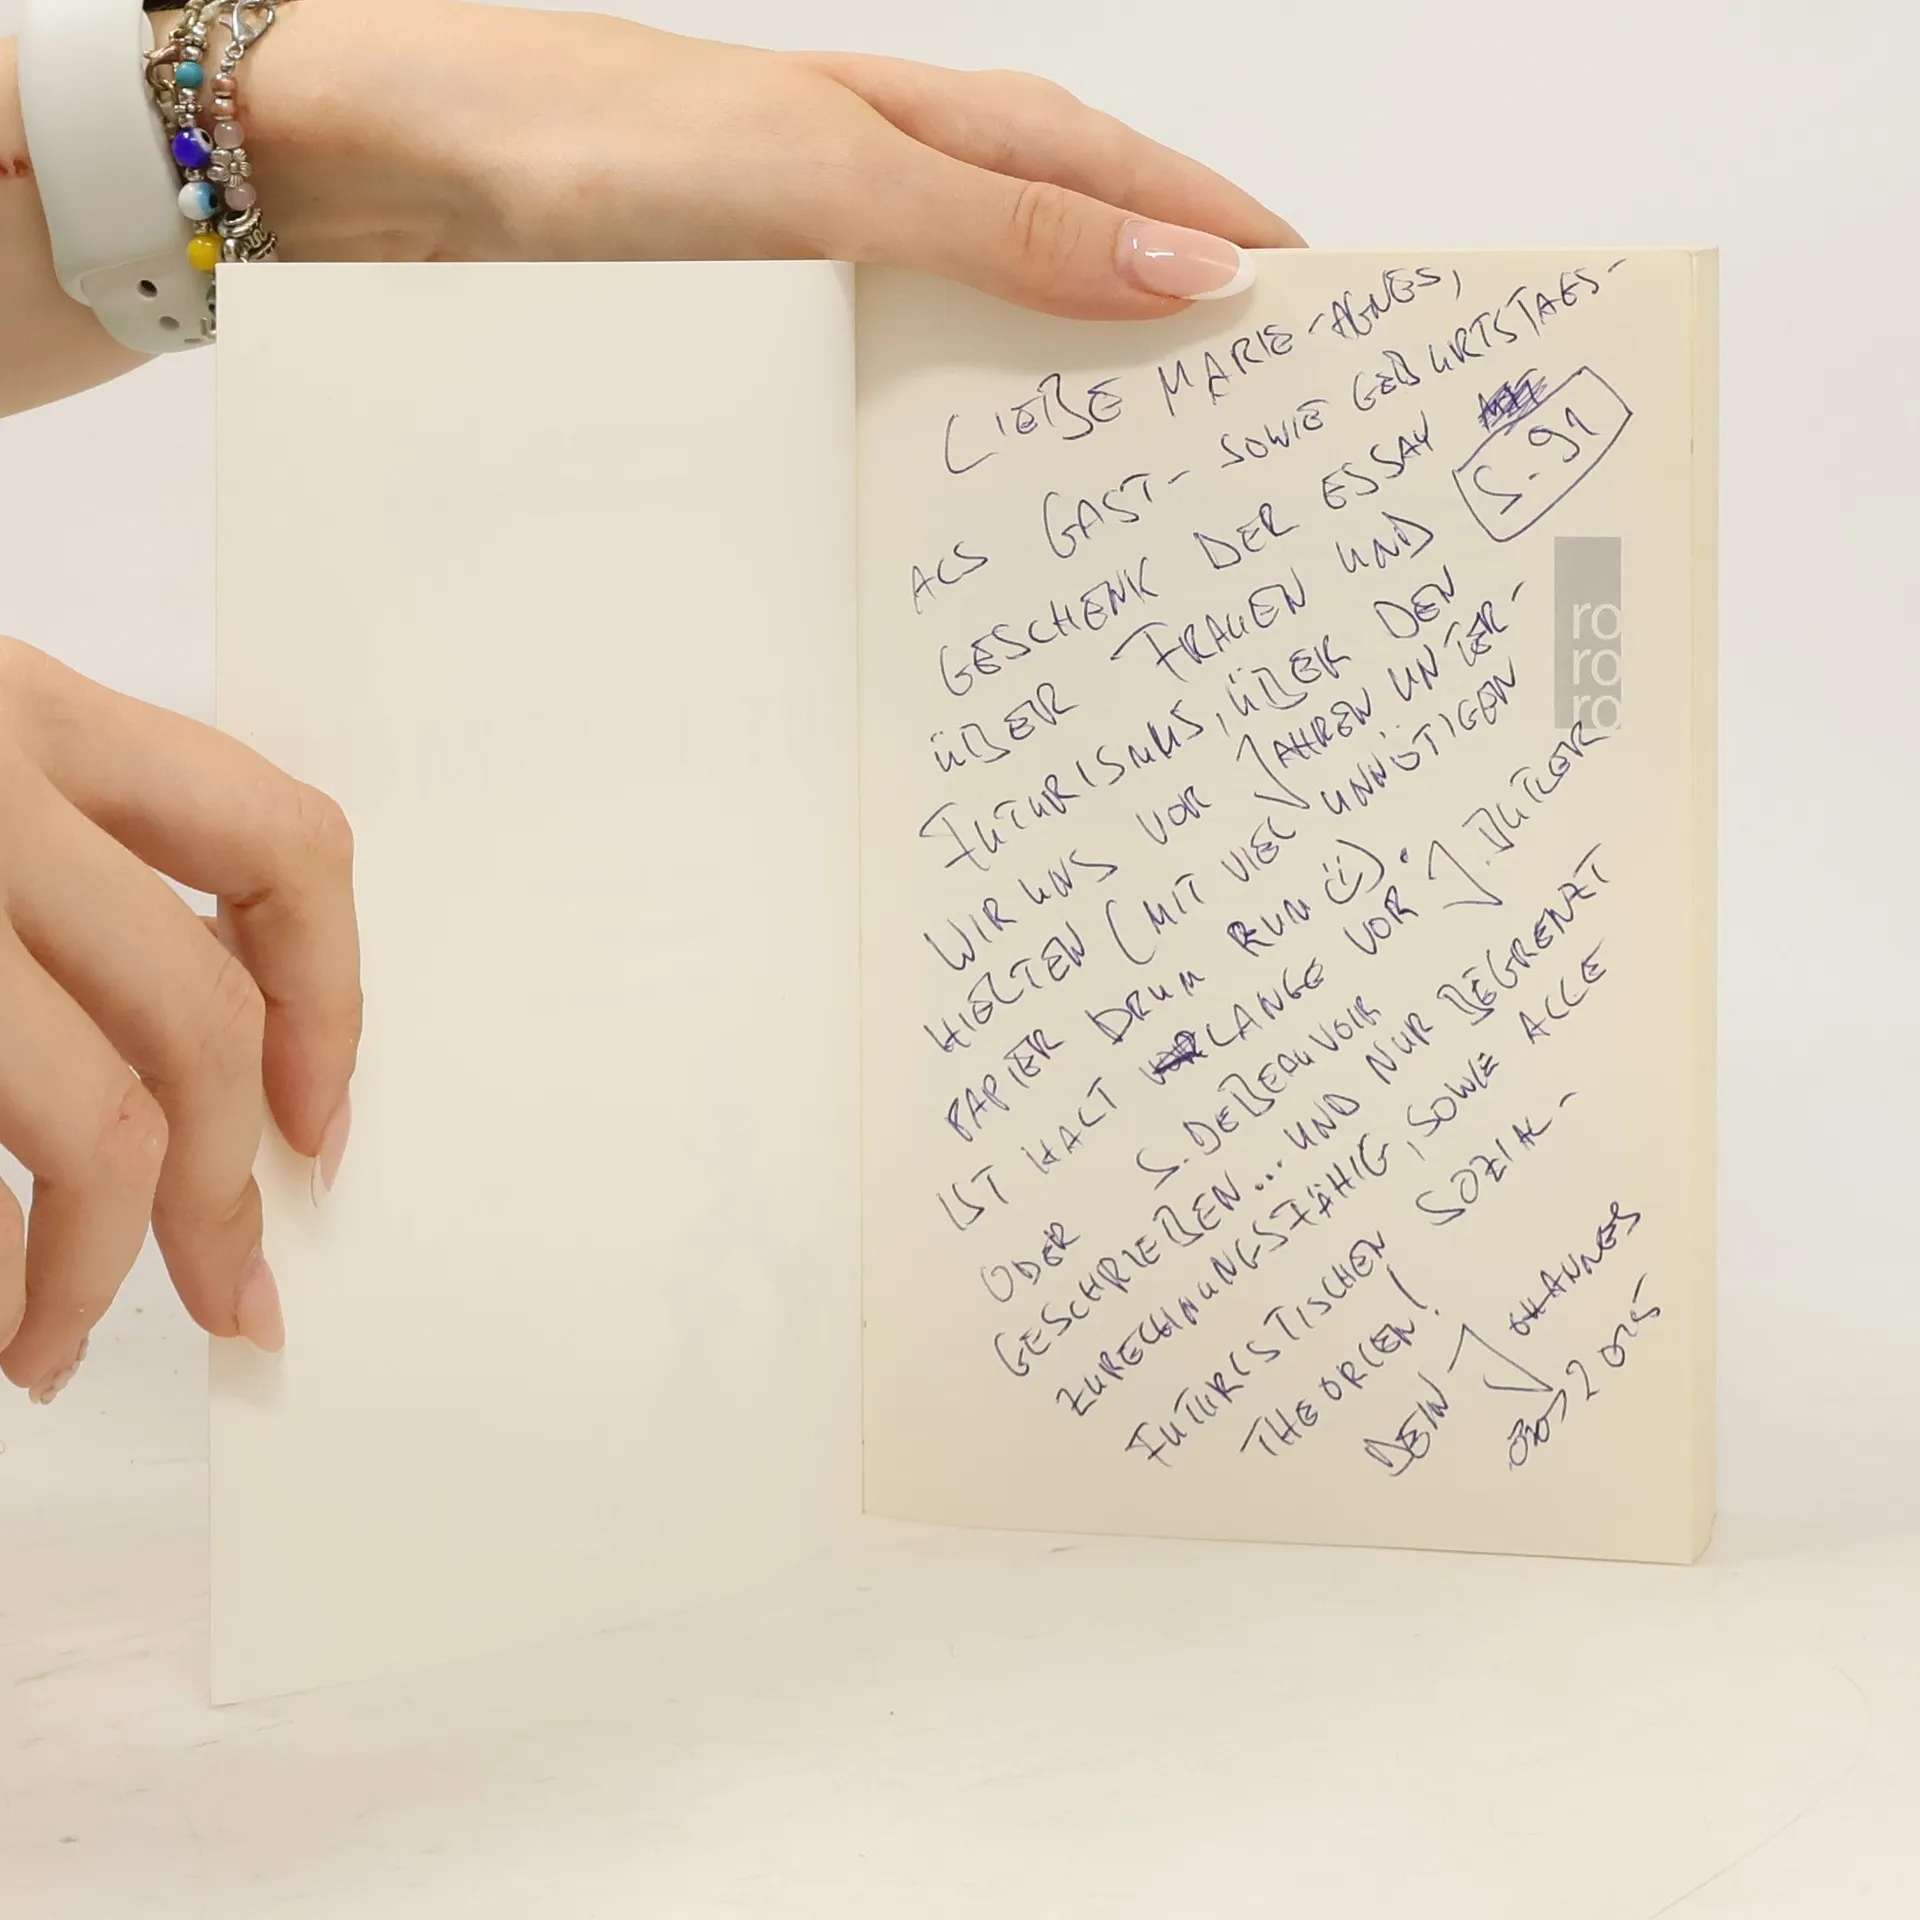 LIEBE MARIE-AGNES,
ALS GAST- SOWIE GEBURTSTAGS-
GESCHENK DER ESSAY
S. 91
ÜBER FRAUEN UND
FUTURISMUS, ÜBER DEN
WIR UNS VOR JAHREN UNTER-
HIELTEN (MIT VIEL UNNÖTIGEN
PAPIER DRUM RUM ☺).
IST HALT LANGE VOR J. BUTLER
ODER S. DEBEAUVOIR
GESCHRIEBEN... UND NUR BEGRENZT
ZURECHNUNGSFÄHIG, SOWIE ALLE
FUTURISTISCHEN SOZIAL-
THEORIEN!
DEIN JOHANNES
2025
ro
ro
ro